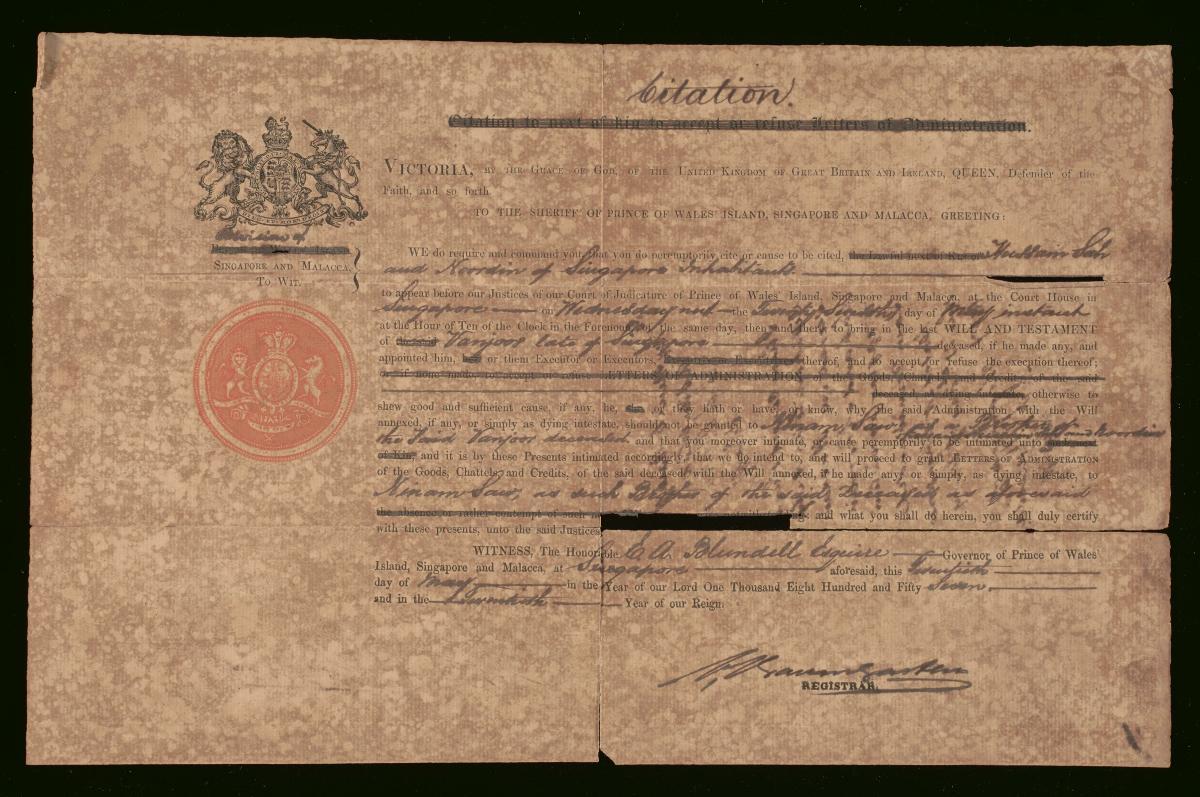 Citation.
Citation to next of kin to accept or refuse Letters of Administration.
VICTORIA, BY THE GRACE OF GOD, OF THE UNITED KINGDOM OF GREAT BRITAIN AND IRELAND, QUEEN, Defender of the
Faith, and so forth
TO THE SHERIFF OF PRINCE OF WALES' ISLAND, SINGAPORE AND MALACCA, GREETING:
Division of
SINGAPORE AND MALACCA,
To Wit.
WE do require and command you, that you do peremptorily cite or cause to be cited, the Lawful next of Kin of Hussain Sah
and Noordin of Singapore Inhabitants
to appear before our Justices of our Court of Judicature of Prince of Wales' Island, Singapore and Malacca, at the Court House in
Singapore on Wednesday next the Twenty day of May instant
at the Hour of Ten of the Clock in the Forenoon of the same day, then and there to bring in the last WILL AND TESTAMENT
of Vanjoor late of Singapore deceased, if he made any, and
appointed him, her or them Executor or Executors, thereof, and to accept or refuse the execution thereof;
or if none made to accept or refuse LETTERS OF ADMINISTRATION of the Goods, Chattels and Credits, of the said
deceased, as dying intestate, otherwise to
shew good and sufficient cause, if any, he, she or they hath or have, or know, why the said Administration with the Will
annexed, if any, or simply as dying intestate, should not be granted to Ninam Saw, as a
the said Vanjoor deceased and that you moreover intimate, or cause peremptorily to be intimated unto Noordin
of kin, and it is by these Presents intimated accordingly, that we do intend to, and will proceed to grant LETTERS OF ADMINISTRATION
of the Goods, Chattels, and Credits, of the said deceased, with the Will annexed, if he made any, or simply, as dying intestate, to
Ninam Saw, as such of the said Deceased as aforesaid
the absence, or rather contempt of and what you shall do herein, you shall duly certify
with these presents, unto the said Justices
WITNESS, The Honorable E A Blundell Esquire Governor of Prince of Wales'
Island, Singapore and Malacca, at Singapore aforesaid, this twentieth
day of May in the Year of our Lord One Thousand Eight Hundred and Fifty Seven,
and in the twentieth Year of our Reign.
Kraumgarten
REGISTRAR.